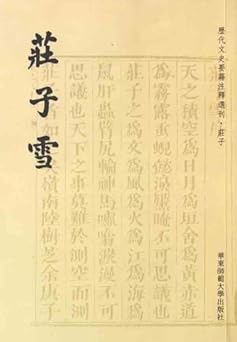 莊子雪
歷代文史要籍注釋選刊·莊子
華東師範大學出版社
天之積空爲日月爲垣舍爲黃赤道
爲霧露不可思議也
莊子之爲文爲風爲火爲江爲海爲
鼠肝蟲臂尻輪神馬不可
思議也天下之事莫難於測空而測
嶺南陸樹芝余庚子